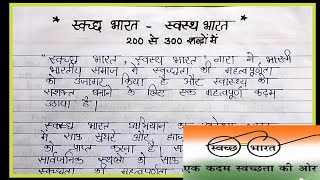 स्वच्छ भारत - स्वस्थ भारत
200 से 300 शब्दों में
"स्वच्छ भारत, स्वस्थ भारत, नारा ने भारती
भारतीय समाज में स्वच्छता की महत्वपूर्णता
को उजागर किया है और स्वास्थ्य को
सशक्त बनाने के लिए एक महत्वपूर्ण कदम
उठाया है।
स्वच्छ भारत अभियान
में साफ सुथरे और
को प्राप्त करना है।
सार्वजनिक स्थलों को साफ
स्वच्छता की महत्वपूर्ण
स्वच्छ भारत
एक कदम स्वच्छता की ओर